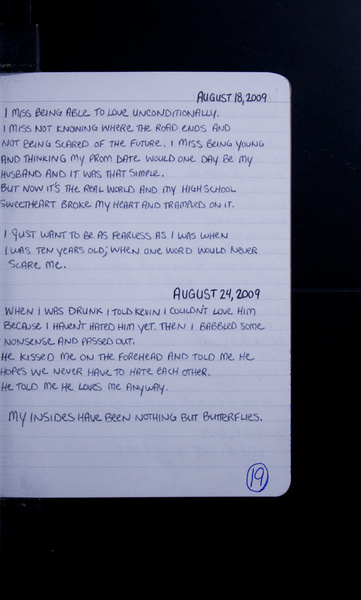 AUGUST 18, 2009
I MISS BEING ABLE TO LOVE UNCONDITIONALLY.
I MISS NOT KNOWING WHERE THE ROAD ENDS AND
NOT BEING SCARED OF THE FUTURE. I MISS BEING YOUNG
AND THINKING MY PROM DATE WOULD ONE DAY BE MY
HUSBAND AND IT WAS THAT SIMPLE.
BUT NOW IT'S THE REAL WORLD AND MY HIGH SCHOOL
SWEETHEART BROKE MY HEART AND TRAMPLED ON IT.
I JUST WANT TO BE AS FEARLESS AS I WAS WHEN
I WAS TEN YEARS OLD; WHEN ONE WORD WOULD NEVER
SCARE ME.
AUGUST 24, 2009
WHEN I WAS DRUNK I TOLD KEVIN I COULDN'T LOVE HIM
BECAUSE I HAVEN'T HATED HIM YET. THEN I BABBLED SOME
NONSENSE AND PASSED OUT.
HE KISSED ME ON THE FOREHEAD AND TOLD ME HE
HOPES WE NEVER HAVE TO HATE EACH OTHER.
HE TOLD ME HE LOVES ME ANYWAY.
MY INSIDES HAVE BEEN NOTHING BUT BUTTERFLIES.
19